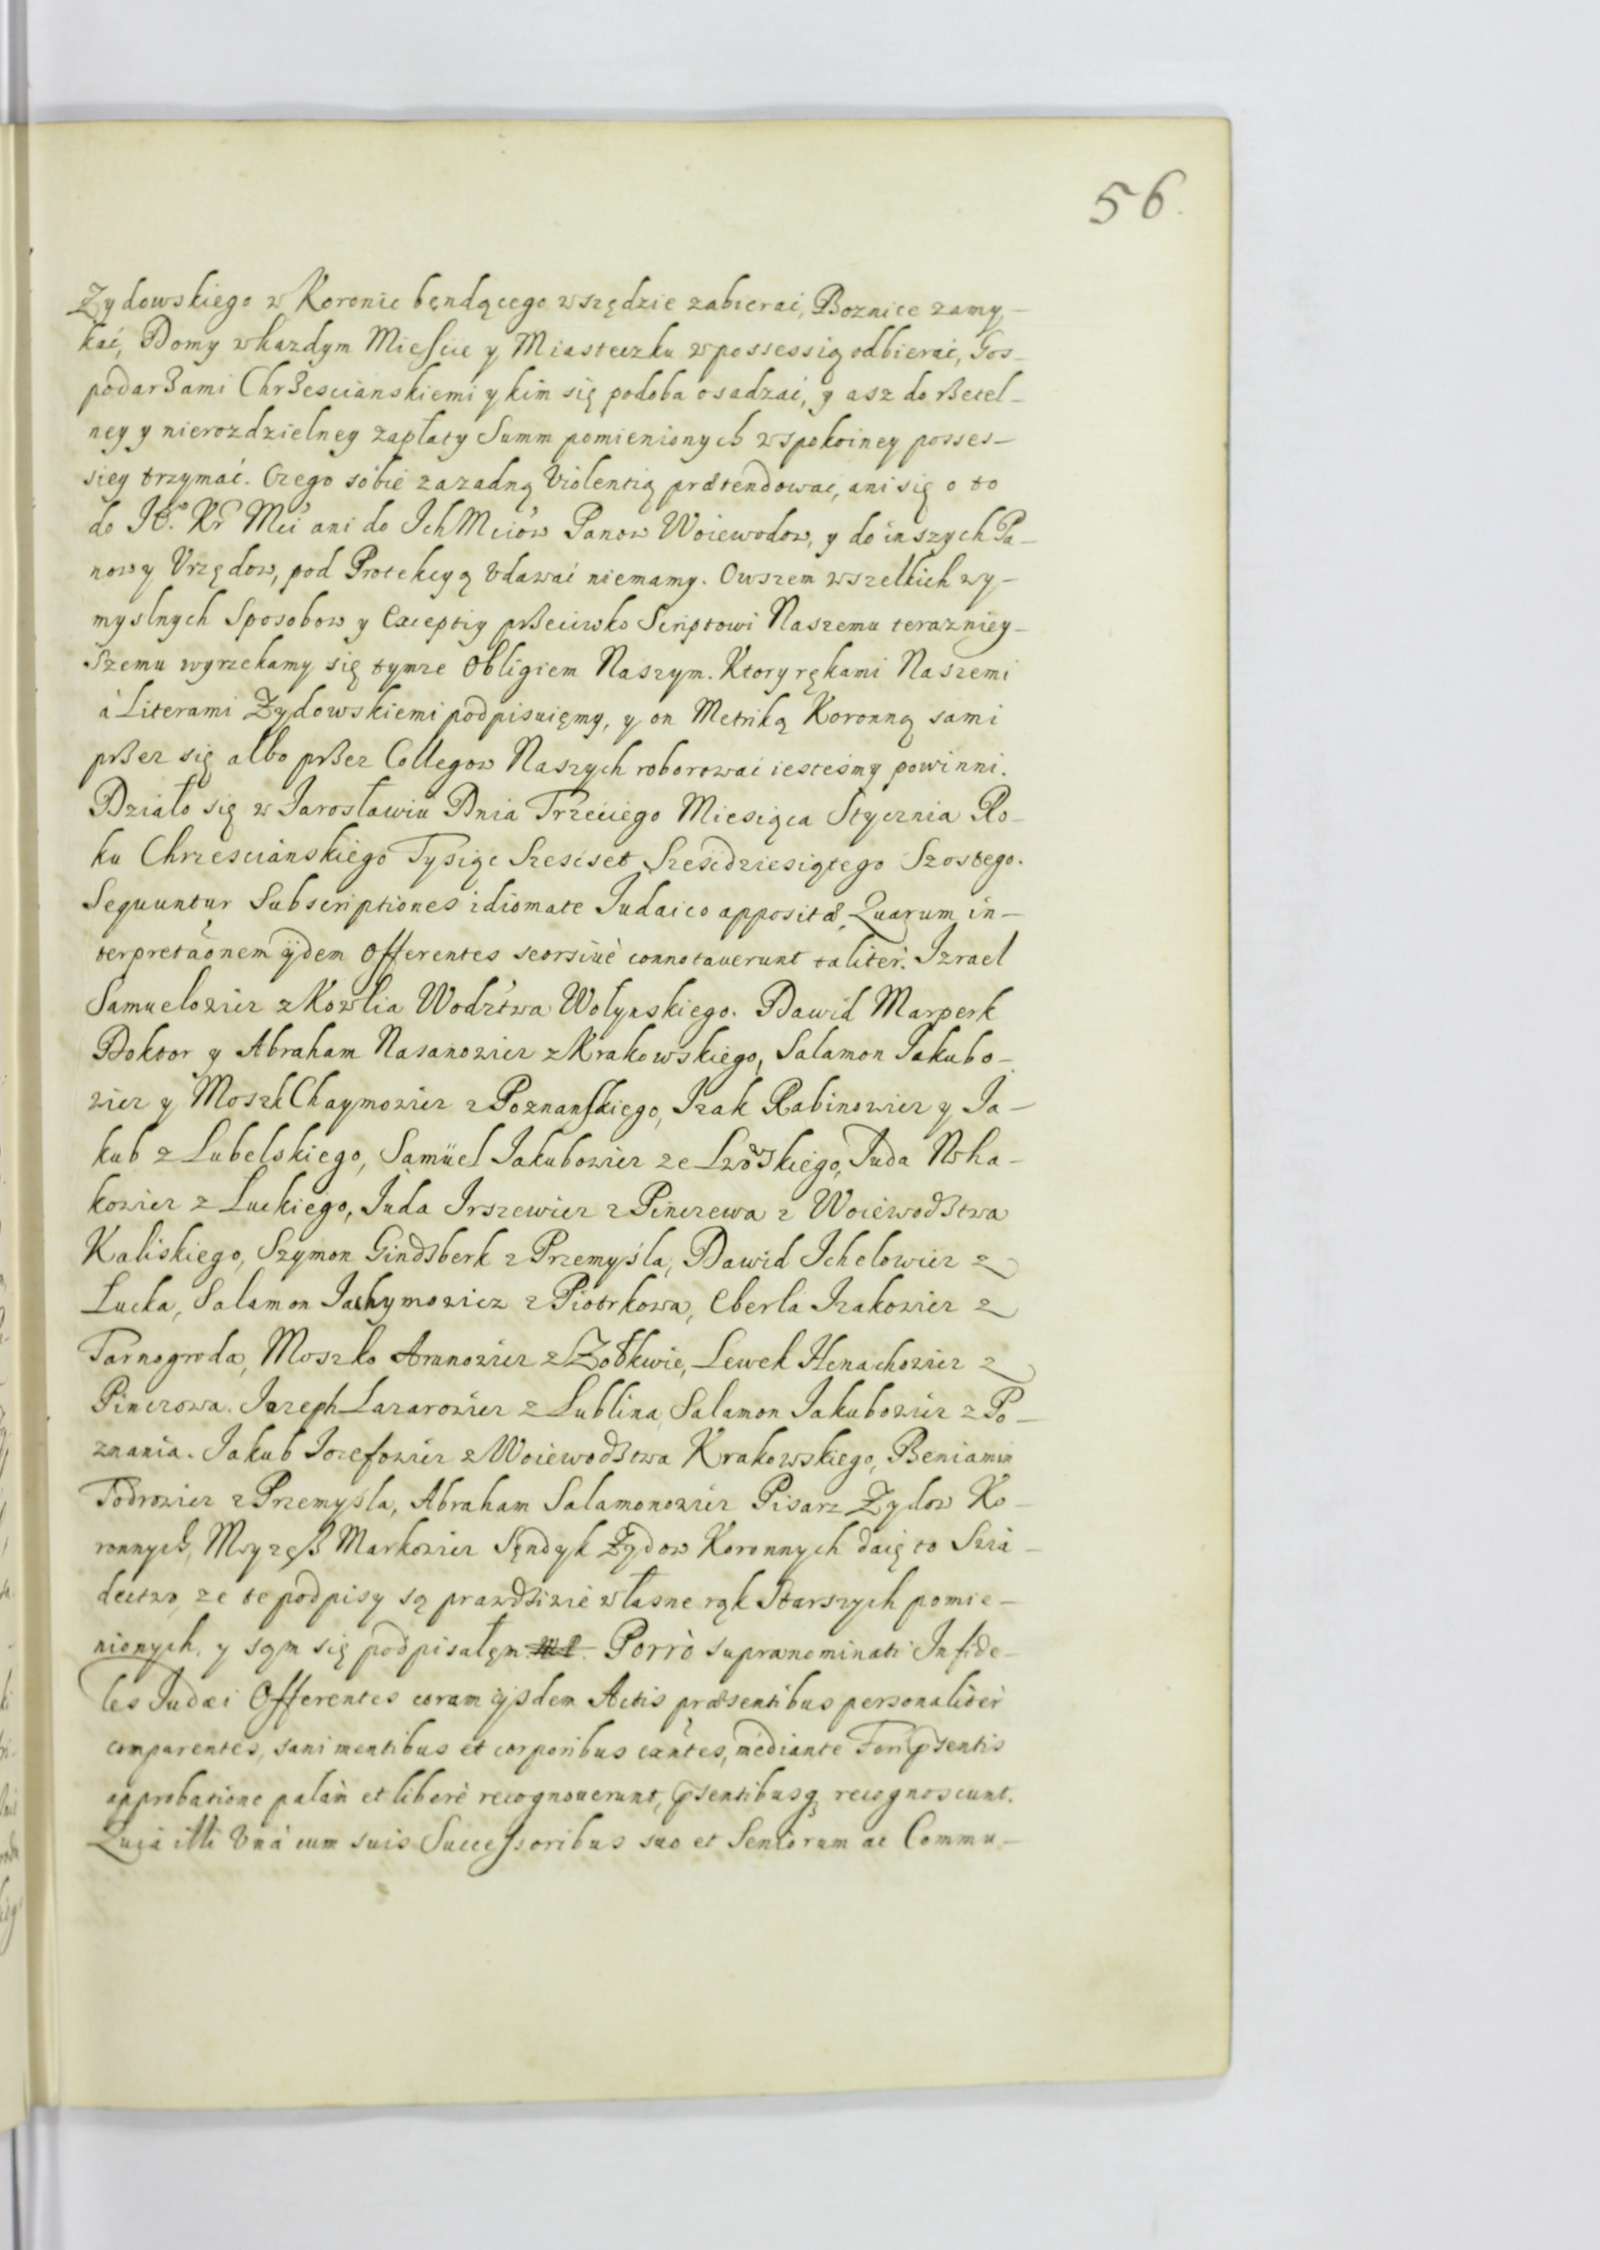 56.
Zydowskiego w Koronie będącego wszędzie zabierać, Boznice zamy-
kać, Domy wkazdym Mieście y Miasteczku wpossessią odbierać, Gos-
podarzami Chrzescianskiemi y kim się podoba osadzać, y asz do rzetel-
ney y nierozdzielney zapłaty Summ pomienionych wspokoiney posses-
siey trzymać. Czego sobie zazadną Violentią prætendować, ani się o to
do Kr Mci ani do Ich Mciow Panow Woiewodow, y do inszych Pa-
now y Vrzędow, pod Protekcyą Vdawać niemamy. Owszem wszelkich wy-
myslnych Sposobow y Exceptiy przeciwko Scriptowi Naszemu terazniey-
szemu wyrzekamy się tymze Obligiem Naszym. Ktory rękami Naszemi
à Literami Zydowskiemi podpisuięmy, y on Metriką Koronną sami
przez się albo przez Collegow Naszych roborować iesteśmy powinni.
Działo się w Jarosławiu Dnia Trzeciego Miesiąca Stycznia Ro-
ku Chrzescianskiego Tysiąc Szescset Szescdziesiątego Szostego.
Sequuntur Subscriptiones idiomate Judaico appositæ, Quarum in-
terpretaonem ijdem Offerentes seorsiuè connotauerunt taliter. Izrael
Samuelowicz z Kowlia Wodztwa Wołynskiego. Dawid Marperk
Doktor y Abraham Nasanowicz z Krakowskiego, Salamon Jakubo-
wicz y Moszk Chaymowicz z Poznanskiego, Izak Rabinowicz y Ja-
kub z Lubelskiego, Samüel Jakubowicz ze Lwowskiego, Juda
kowicz z Luckiego, Juda Irszewicz z Pinczewa z Woiewodztwa
Kaliskiego, Szymon Gindsberk z Przemyśla, Dawid Ichelowicz z
Łucka, Salamon Jachymowicz z Piotrkowa, Eberla Izakowicz z
Tarnogroda, Moszko z Zołkwie, Lewek Henachowicz z
Pinczowa. Jozeph Lazarowicz z Lublina, Salamon Jakubowicz z Po-
znania. Jakub Jozefowicz z Woiewodztwa Krakowskiego, Beniamin
Todrowicz z Przemysla, Abraham Salamonowicz Pisarz Zydow Ko-
ronnych, Moyzesz Markowicz Sęndyk Zydow Koronnych daię to Swia-
dectwo, ze te podpisy są prawdziwie własne rąk Starszych pomie-
nionych, y sąm się podpisałęm. Porrò supranominati Infide-
les Judæi Offerentes coram ijsdem Actis præsentibus personaliter
comparentes, sani mentibus et corporibus exntes, mediante Fori psentis
approbatione palam et liberè recognouerunt, psentibusq recognoscunt.
Quia illi Vnà cum suis Successoribus suo et Seniorum ac Commu-